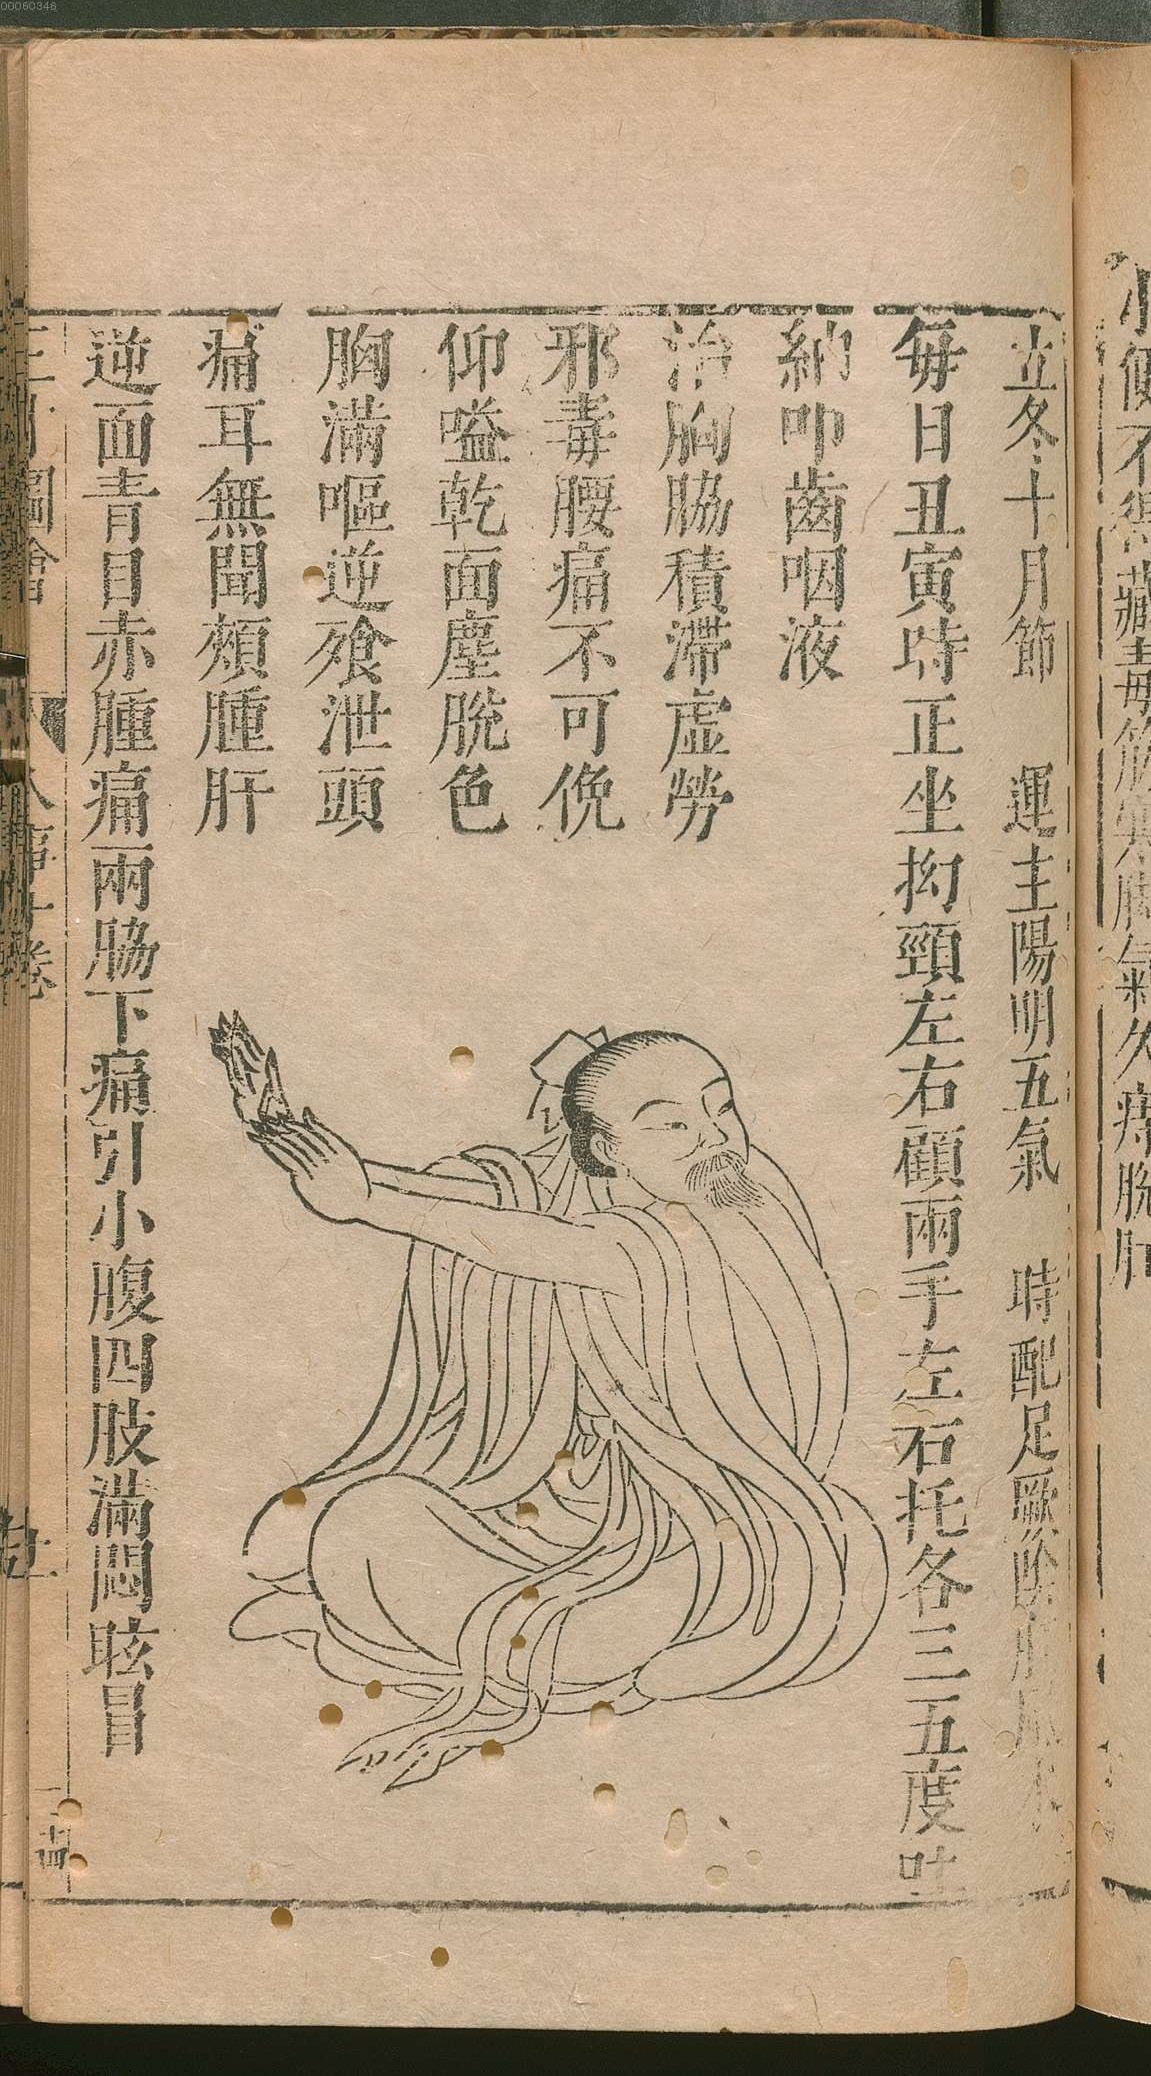 小便不得藏毒筋寒脚氣久痔脫肛
立冬十月節　運主陽明五氣　時配足厥陰肝風木
每日丑寅時正坐拗頸左右顧兩手左右托各三五度吐
納叩齒咽液
治胸脇積滯虛勞
邪毒腰痛不可俛
仰嗌乾面塵脫色
胸滿嘔逆飧泄頭
痛耳無聞頰腫肝
逆面青目赤腫痛兩脇下痛引小腹四肢滿悶眩冒
三才圖會　人事十卷　二十四
00060346